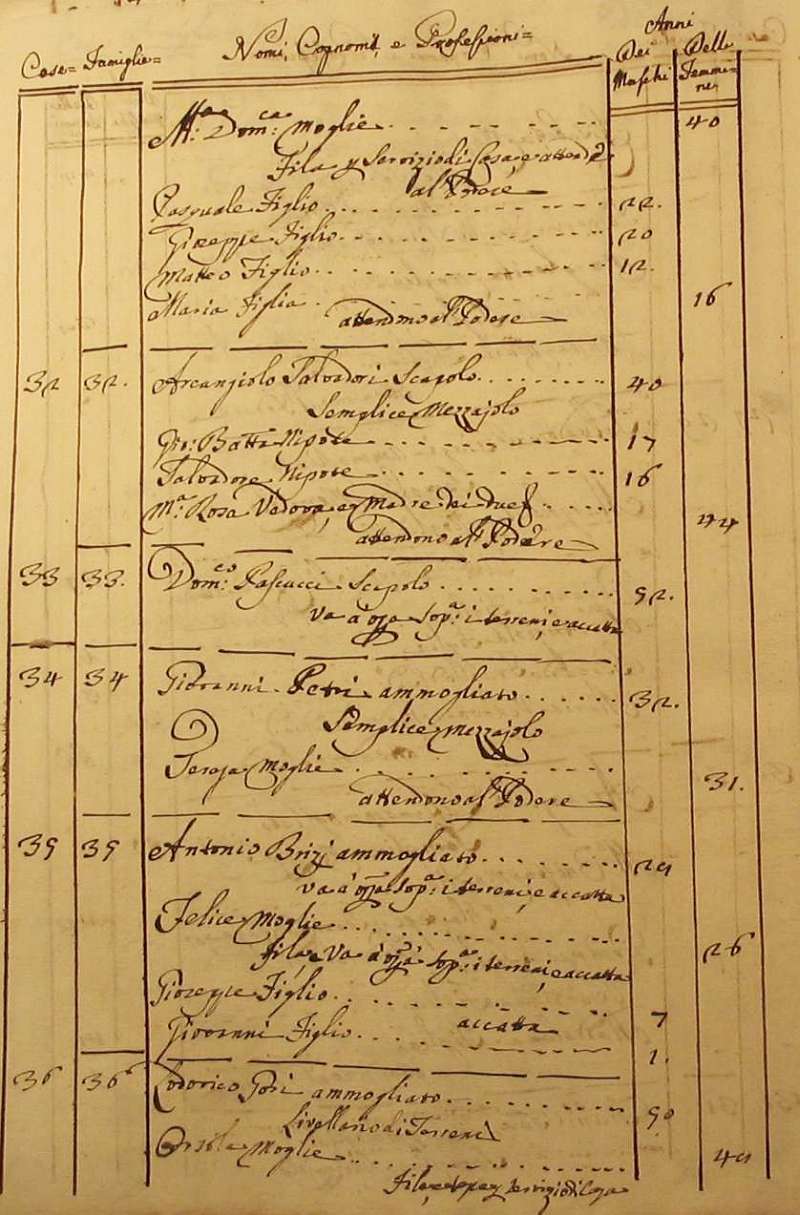 Case= Famiglie= Nomi, Cognomi, e Professioni= Anni
Dei Maschi Delle Femmine
M.ª Dom.ca Moglie 40
Fila p Servizio di Casa, e attende
al Podere
Pasquale Figlio 22.
Giuseppe Figlio 20
Matteo Figlio 12.
Maria Figlia 16
attendono al Podere
32 32. Arcangiolo Salvadori Scapolo 40
Semplice Mezzajolo
Gio: Batta Nipote 17
Salvadore Nipote 16
M.ª Rosa Vedova, e Madre dei Due 44
attendono al Podere
33 33. Dom.co Pascucci Scapolo 52.
va a opa Sop.ª i terreni, e accatta
34 34 Giovanni Petri ammogliato 32.
Semplice Mezzajolo
Teresa Moglie 31.
attendono al Podere
35 35 Antonio Brizj ammogliato 29
va a opa Sop.ª i terreni, e accatta
Felice Moglie 26
fila, e va a opa Sop.ª i terreni, e accatta
Giuseppe Figlio 7
accatta
Giovanni Figlio 1.
36 36 Lodovico Gori ammogliato 50
Livellario di Terreni
Orsola Moglie 49
fila, e servizio di Casa